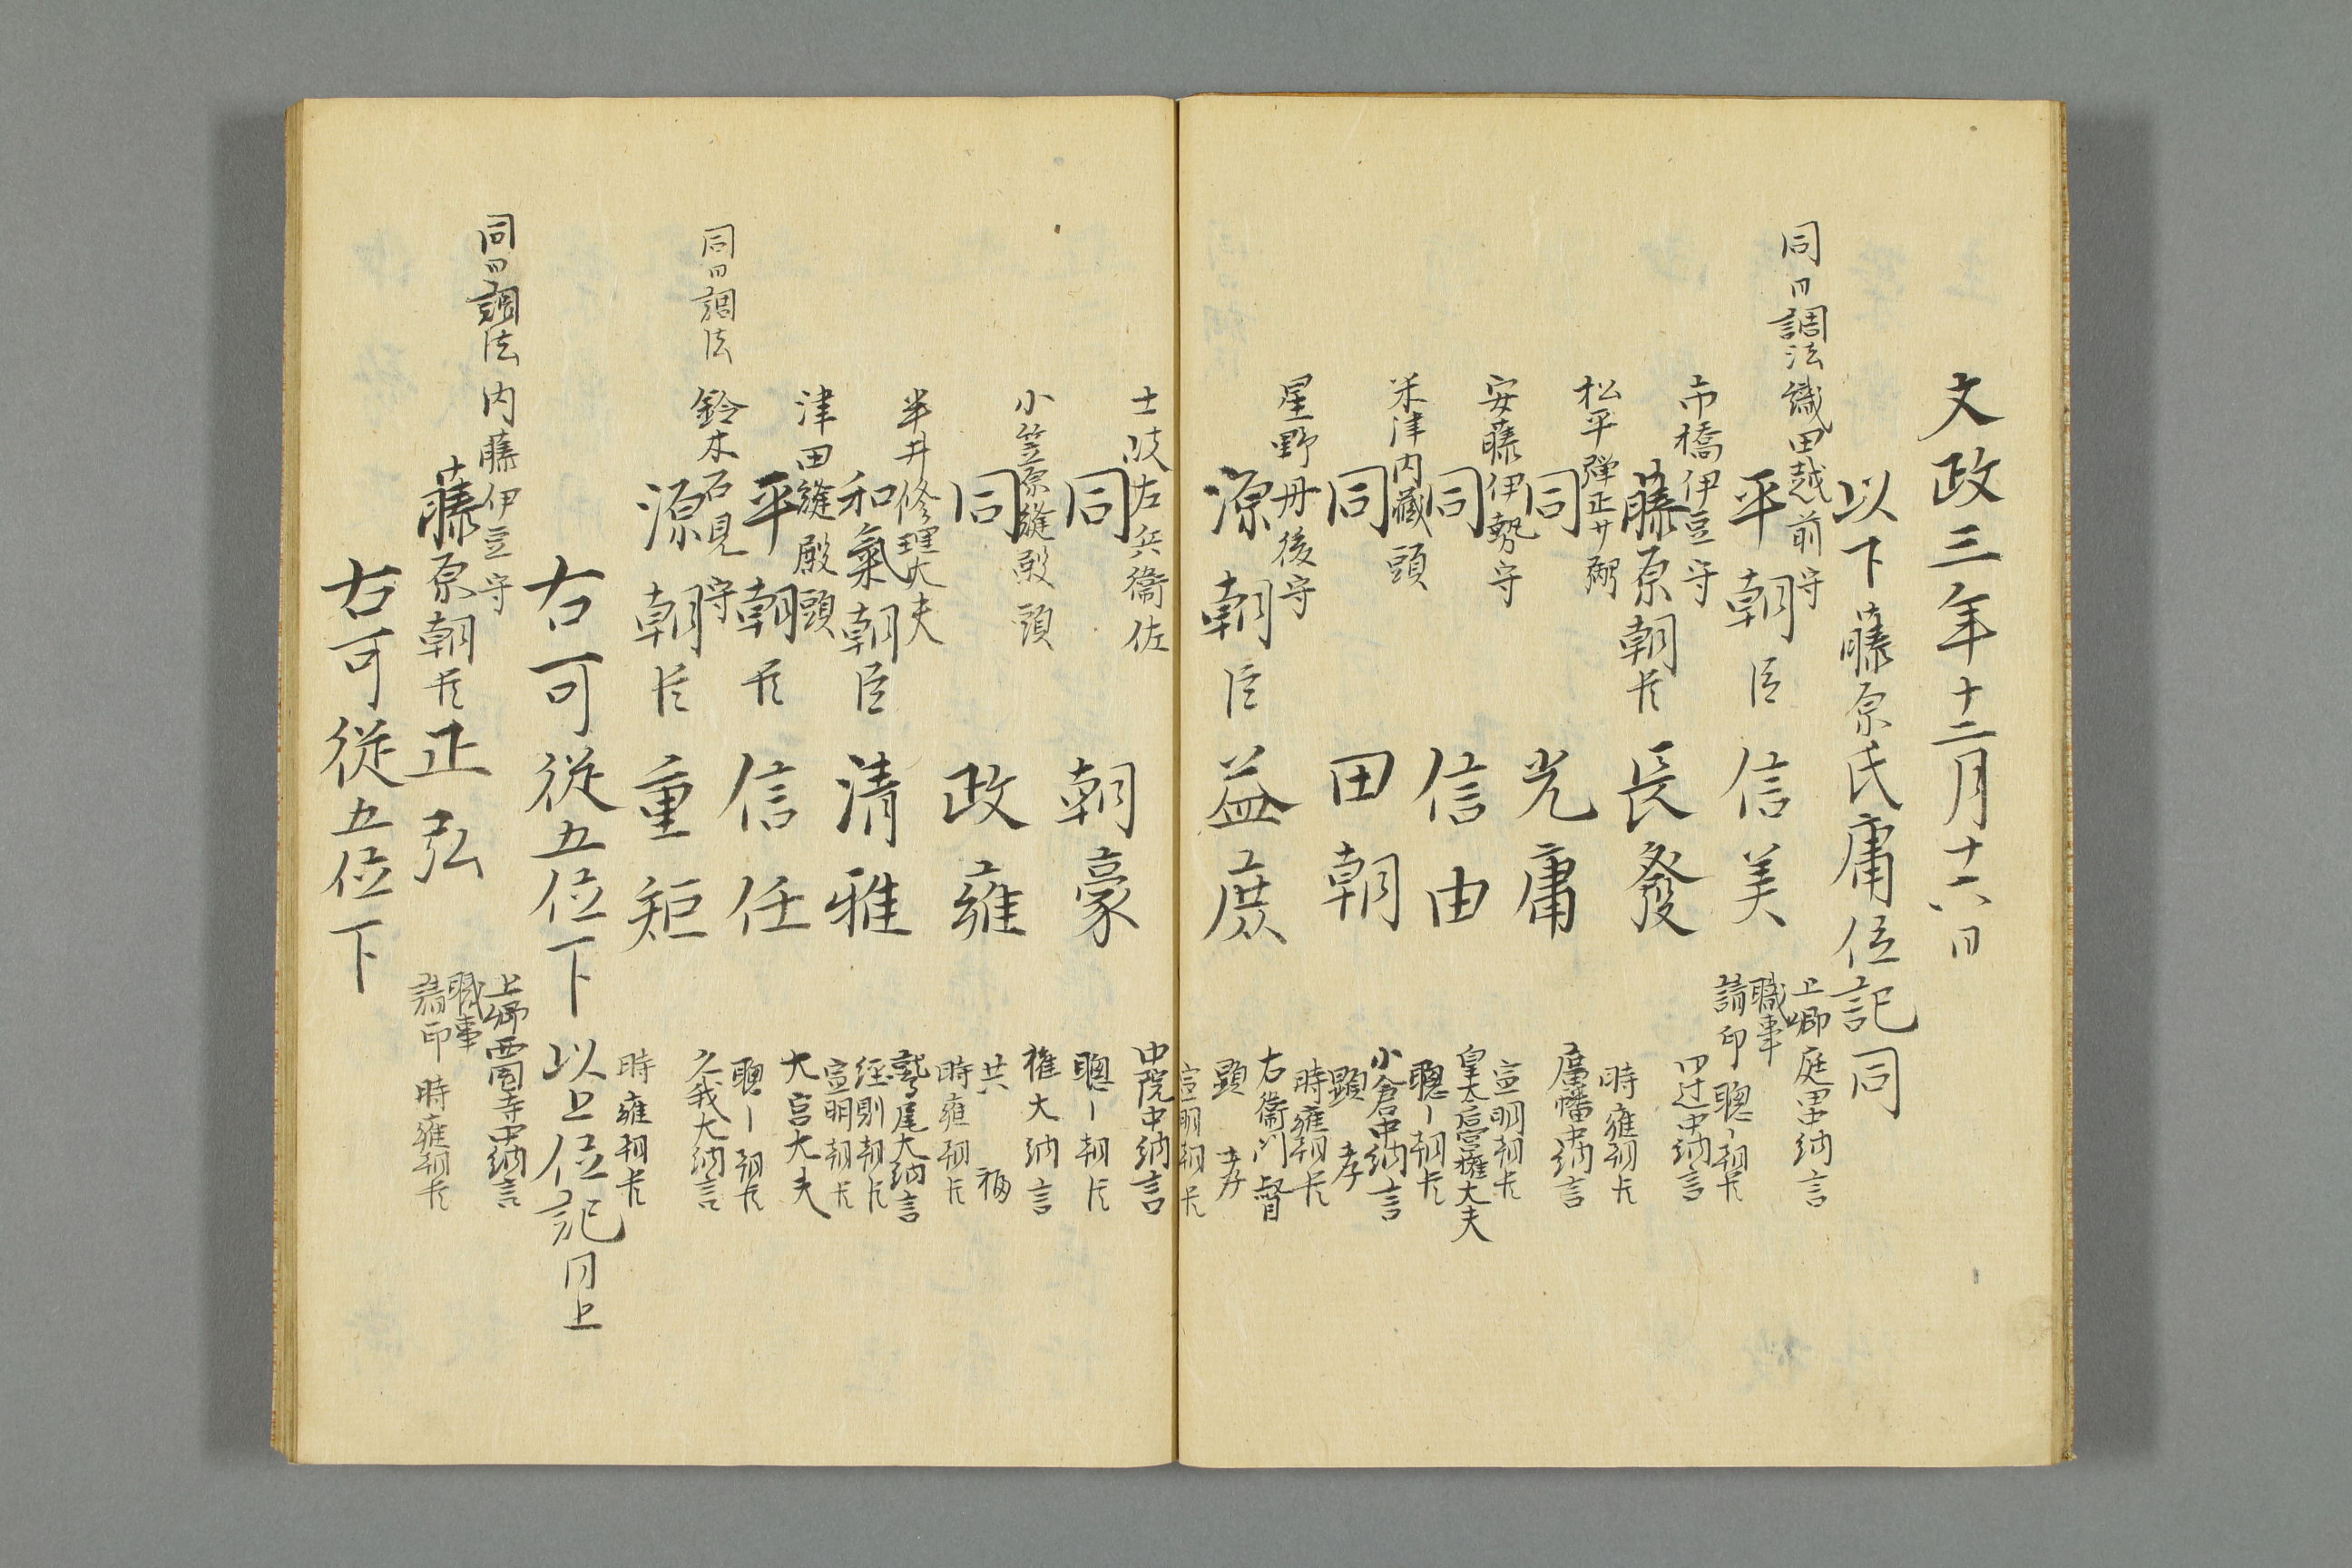 文政三年十二月十六日
以下藤原氏庸位記同
同日調法織田越前守
平朝臣信美
上卿庭田中納言
職事聰一朝臣
請印
市橋伊豆守
藤原朝臣長發
四辻中納言
時雍朝臣
松平弾正少弼
同光庸
廣幡中納言
宣明朝臣
安藤伊勢守
同信由
皇太后宮権大夫
聰一朝臣
米津内藏頭
同田朝
小倉中納言
顕孝
時雍朝臣
星野丹後守
源朝臣益庶
右衞門督
顕孝
宣明朝臣
土岐左兵衞佐
同朝豪
中院中納言
聰一朝臣
小笠原縫殿頭
同政雍
権大納言
共福
時雍朝臣
半井修理大夫
和氣朝臣清雅
鷲尾大納言
経則朝臣
宣明朝臣
津田縫殿頭
平朝臣信任
大宮大夫
聰一朝臣
同日調法
鈴木石見守
源朝臣重矩
久我大納言
時雍朝臣
右可従五位下以上位記同上
同日調法内藤伊豆守
藤原朝臣正弘
上卿西園寺中納言
職事
請印時雍朝臣
右可従五位下